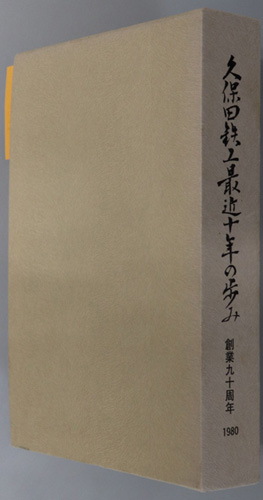 久保田鉄工最近十年の歩み
創業九十周年
1980